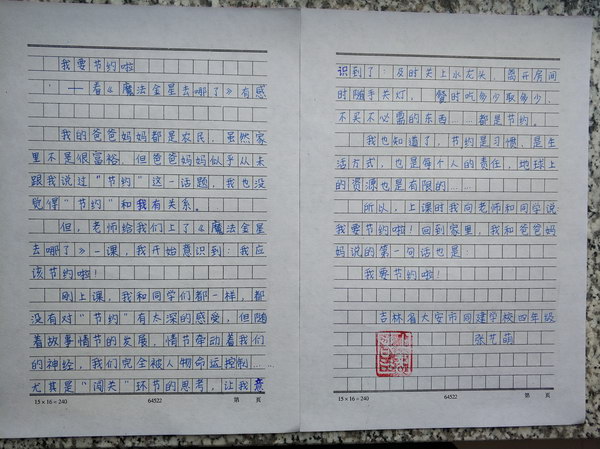 我要节约啦
——看《魔法金星去哪了》有感
我的爸爸妈妈都是农民，虽然家
里不是很富裕，但爸爸妈妈似乎从未
跟我说过“节约”这一话题，我也没
觉得“节约”和我有关系。
但，老师给我们上了《魔法金星
去哪了》一课，我开始意识到：我应
该节约啦！
刚上课，我和同学们都一样，都
没有对“节约”有太深的感受，但随
着故事情节的发展，情节牵动着我们
的神经，我们完全被人物命运控制……
尤其是“闯关”环节的思考，让我意
15×16=240
64522
第 页
识到了：及时关上水龙头，离开房间
时随手关灯，餐时吃多少取多少，
不买不必需的东西……都是节约。
我也知道了，节约是习惯，是生
活方式，也是每个人的责任，地球上
的资源也是有限的……
所以，上课时我向老师和同学说
我要节约啦！回到家里，我和爸爸妈
妈说的第一句话也是：
我要节约啦！
吉林省大安市同建学校四年级
张艺萌
15×16=240
64522
第 页